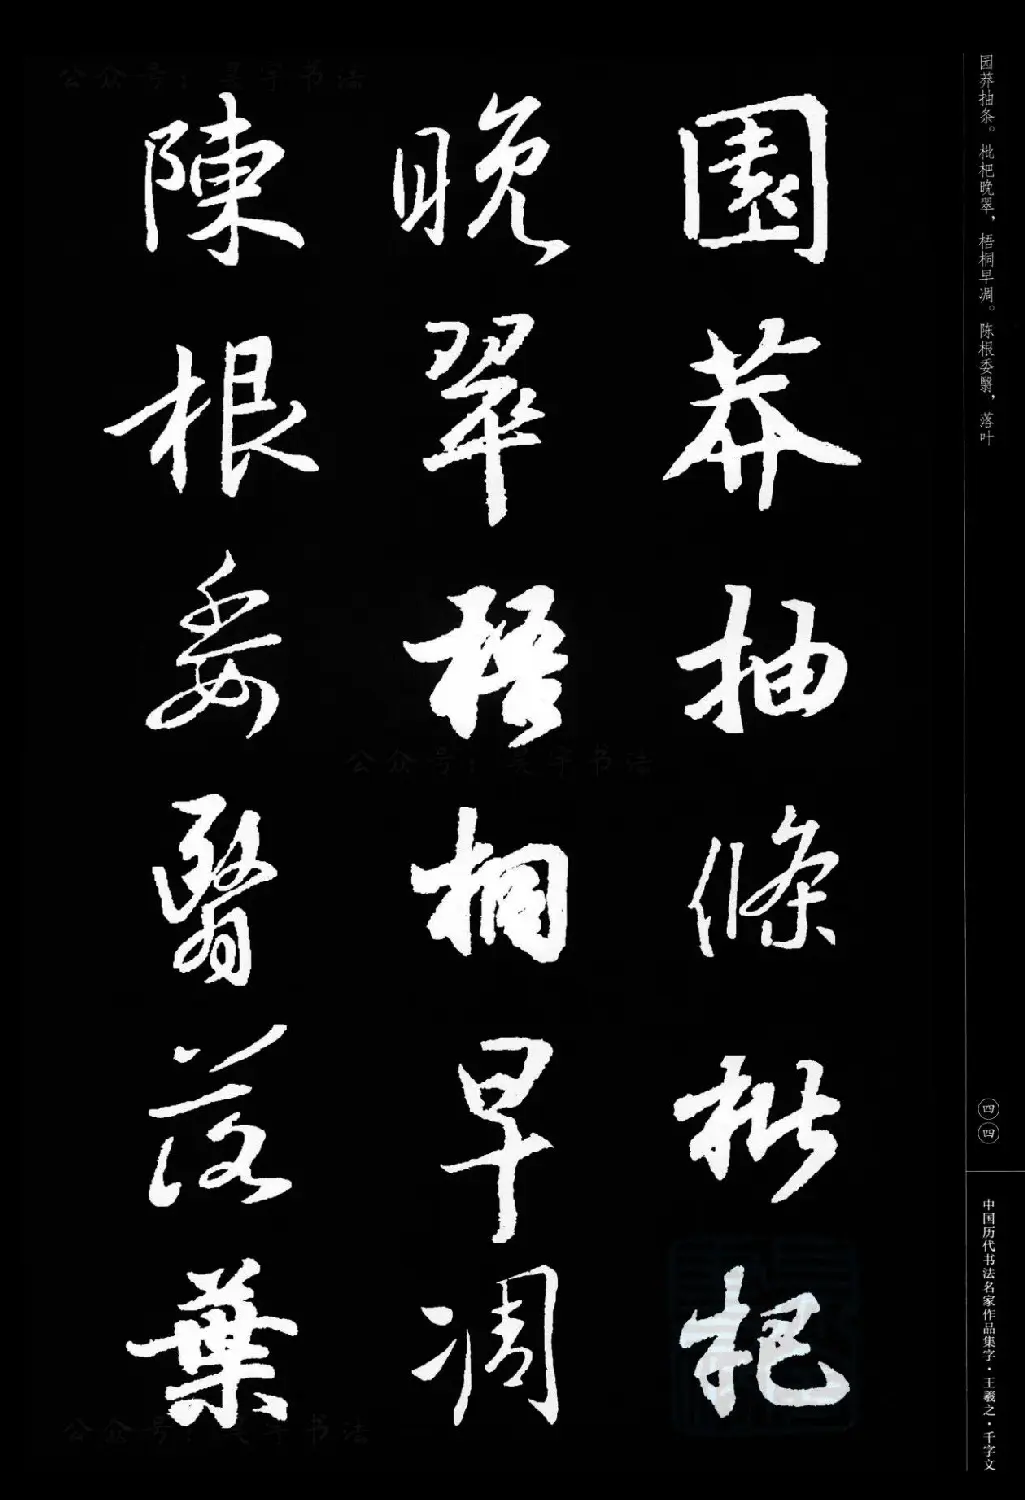 園莽抽條枇杷
晚翠梧桐早凋
陳根委翳落葉
园莽抽条。枇杷晚翠，梧桐早凋。陈根委翳，落叶
四四
中国历代书法名家作品集字·王羲之·千字文